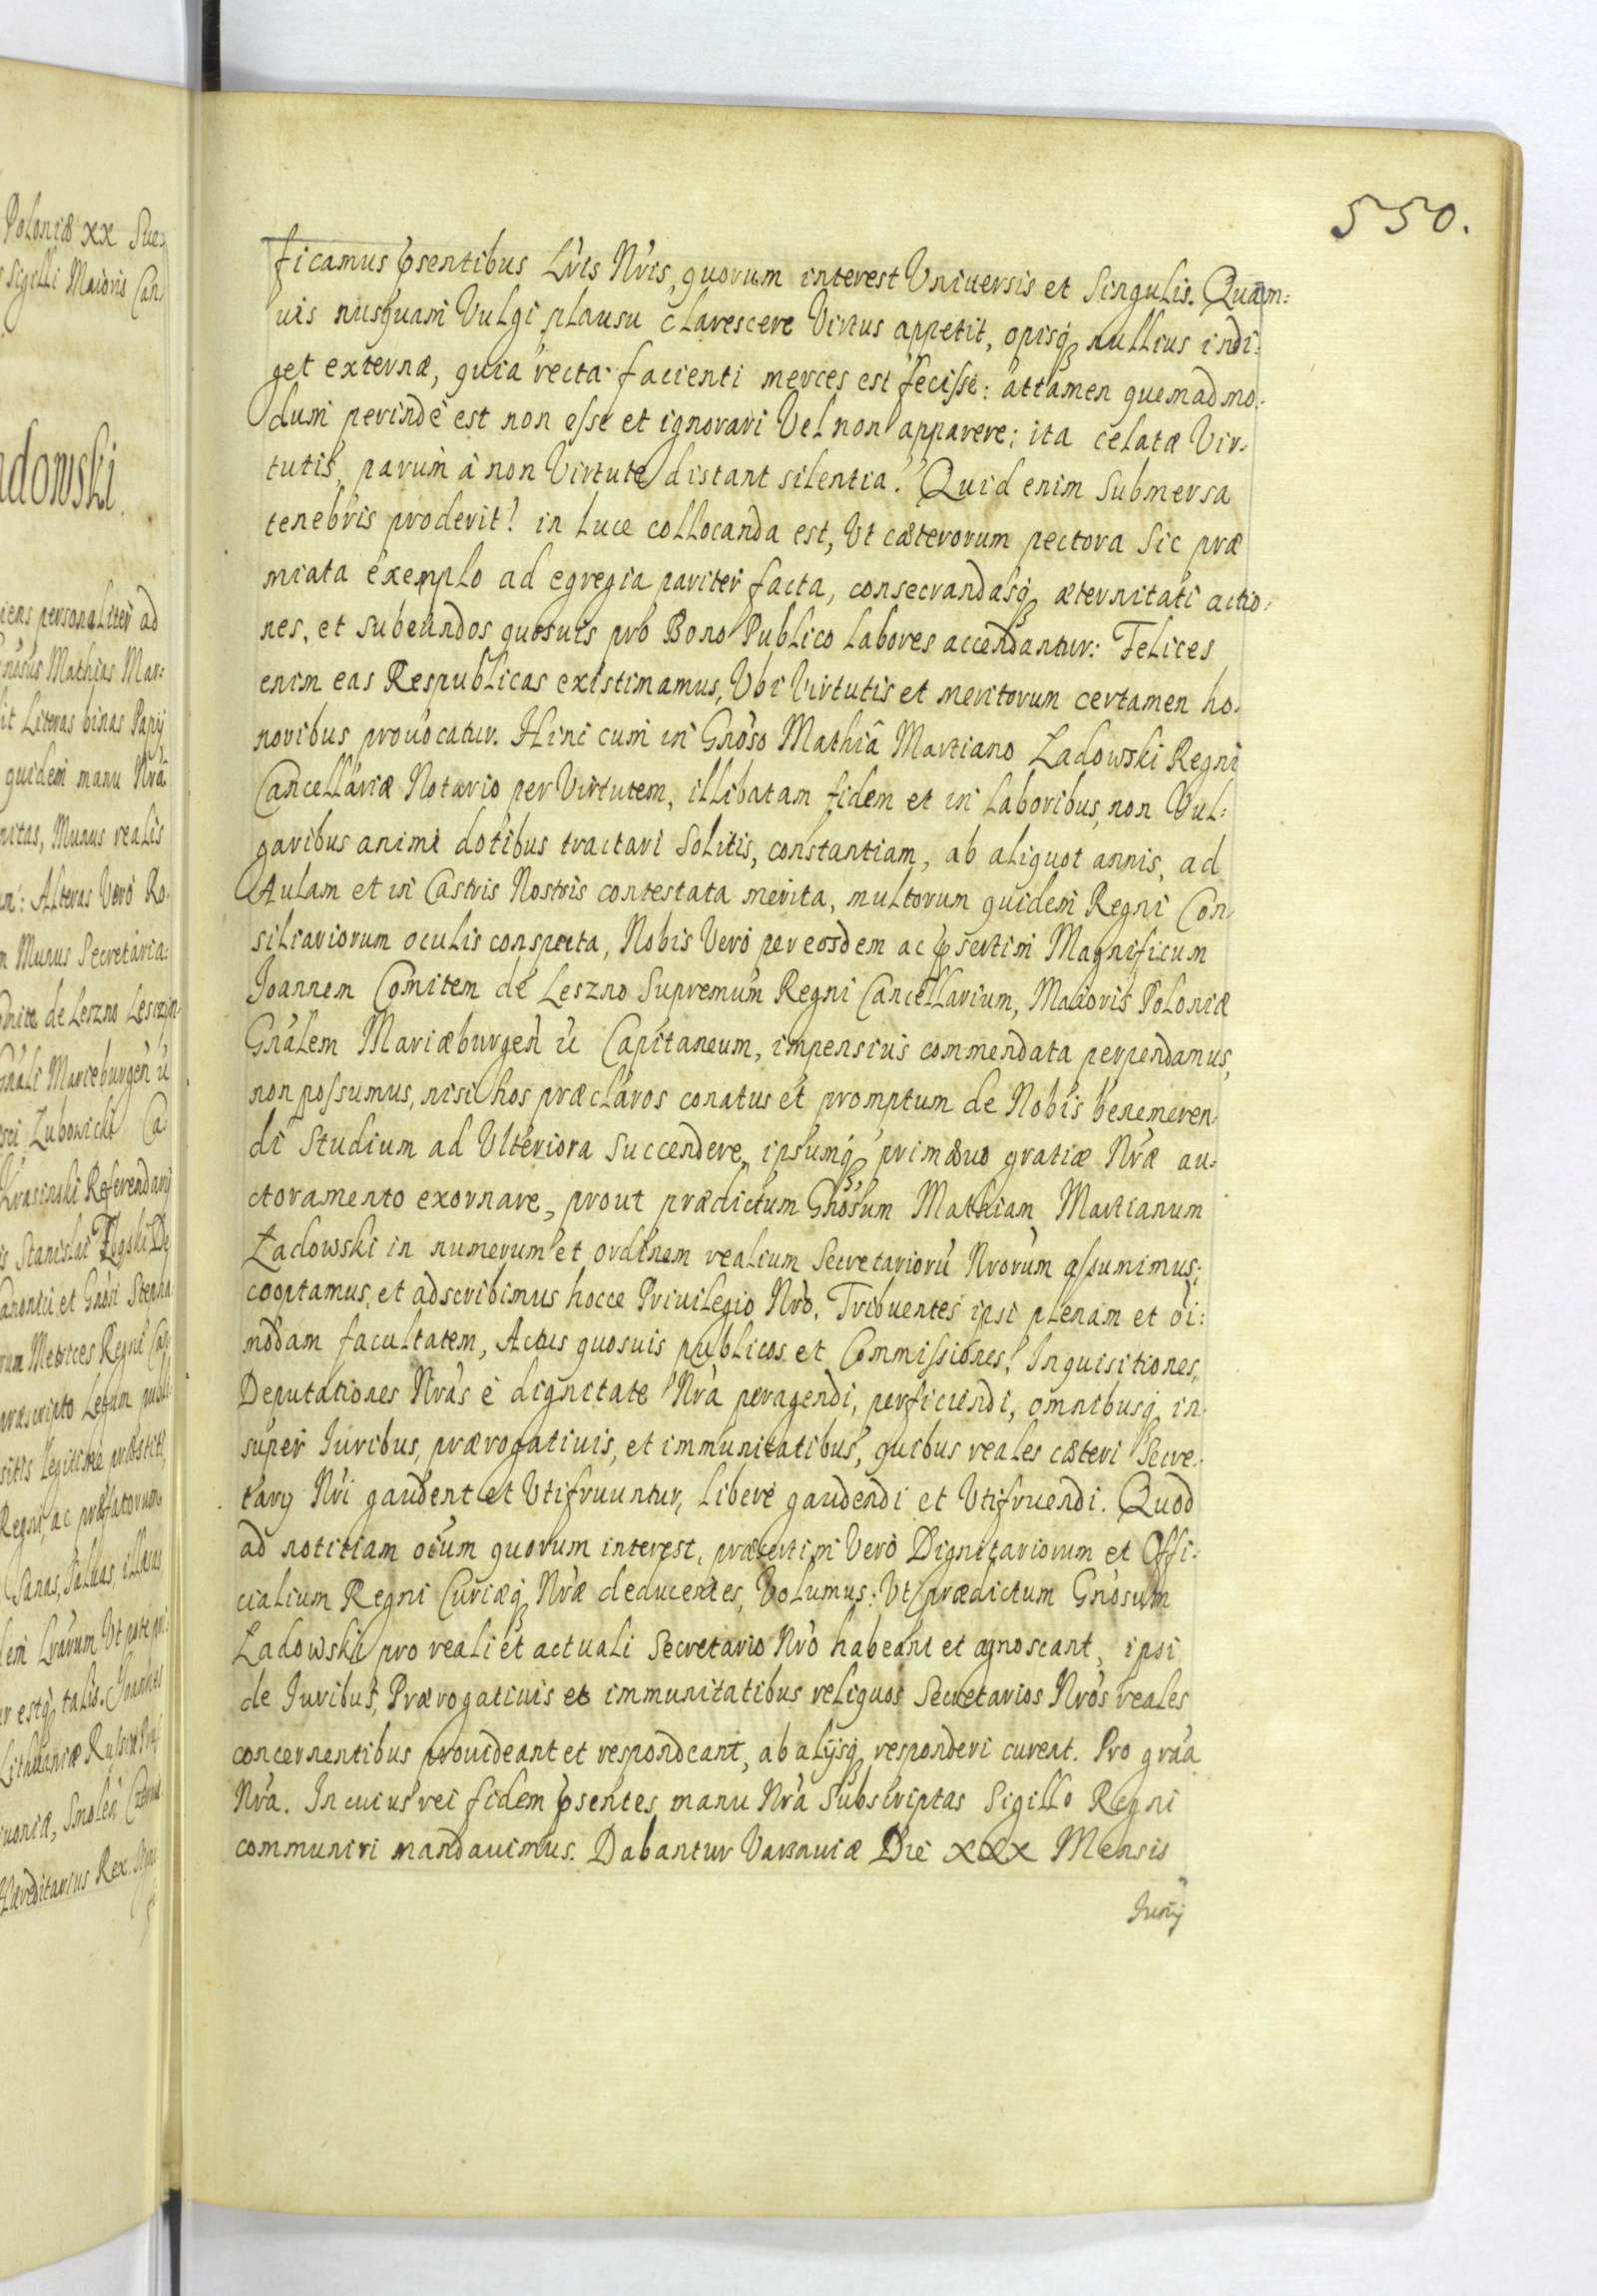 550.
ficamus pńsentibus Lr̃is Nr̃is, quorum interest Vniuersis et Singulis. Quam:
uis nusquam Vulgi plausu clarescere Virtus appetit, opisq̃ nullius indi:
get externæ, quia recta facienti merces est fecisse: attamen quemadmo:
dum perinde est non esse et ignorari Vel non apparere; ita celatæ Vir:
tutis, parum à non Virtute distant silentia. Quid enim submersa
tenebris proderit! in luce collocanda est, Vt cæterorum pectora sic præ
miata exemplo ad egregia pariter facta, consecrandasq̃ æternitati actio:
nes, et subeundos quosuis pro Bono Publico labores accendantur: Felices
enim eas Respublicas existimamus, Vbi Virtutis et meritorum certamen ho:
noribus prouocatur. Hinc cum in Gnõso Mathia Martiano Ladowski Regni
Cancellariæ Notario per Virtutem, illibatam fidem et in laboribus, non Vul:
garibus animi dotibus tractari solitis, constantiam, ab aliquot annis, ad
Aulam et in Castris Nostris contestata merita, multorum quidem Regni Con:
siliariorum oculis conspecta, Nobis Vero per eosdem ac p̃sertim Magnificum
Joannem Comitem de Leszno Supremum Regni Cancellarium, Maioris Poloniæ
Gnãlem Mariæburgeñ ũ Capitaneum, impensius commendata perpendamus,
non possumus, nisi hos præclaros conatus et promptum de Nobis benemeren:
di studium ad Vlteriora succendere, ipsumq̃ primæuo gratiæ Nr̃æ au:
ctoramento exornare, prout prædictum Gnõsum Mathiam Martianum
Ładowski in numerum et ordinem realium Secretariorũ Nrõrum assumimus;
cooptamus, et adscribimus hocce Priuilegio Nrõ. Tribuentes ipsi plenam et oĩ:
modam facultatem, Actus quosuis publicos et Commissiones, Inquisitiones,
Deputationes Nrãs è dignitate Nrã peragendi, perficiendi, omnibusq̃ in:
super Iuribus, prærogatiuis, et immunitatibus, quibus reales cæteri Secre:
tarij Nr̃i gaudent et Vtifruuntur, libere gaudendi et Vtifruendi. Quod
ad notitiam oĩum quorum interest, præsertim Verò Dignitariorum et Offi:
cialium Regni Curiæq̃ Nr̃æ deducentes, Volumus: Vt prædictum Gnõsum
Ladowski pro reali et actuali Secretario Nrõ habeant et agnoscant, ipsi
de Iuribus, Prærogatiuis et immunitatibus reliquos Secretarios Nrõs reales
concernentibus prouideant et respondeant, ab alijsq̃ responderi curent. Pro grãa
Nrã. In cuius rei fidem p̃sentes manu Nrã Subscriptas Sigillo Regni
communiri mandauimus. Dabantur Varsauiæ Die XXX Mensis
Junij